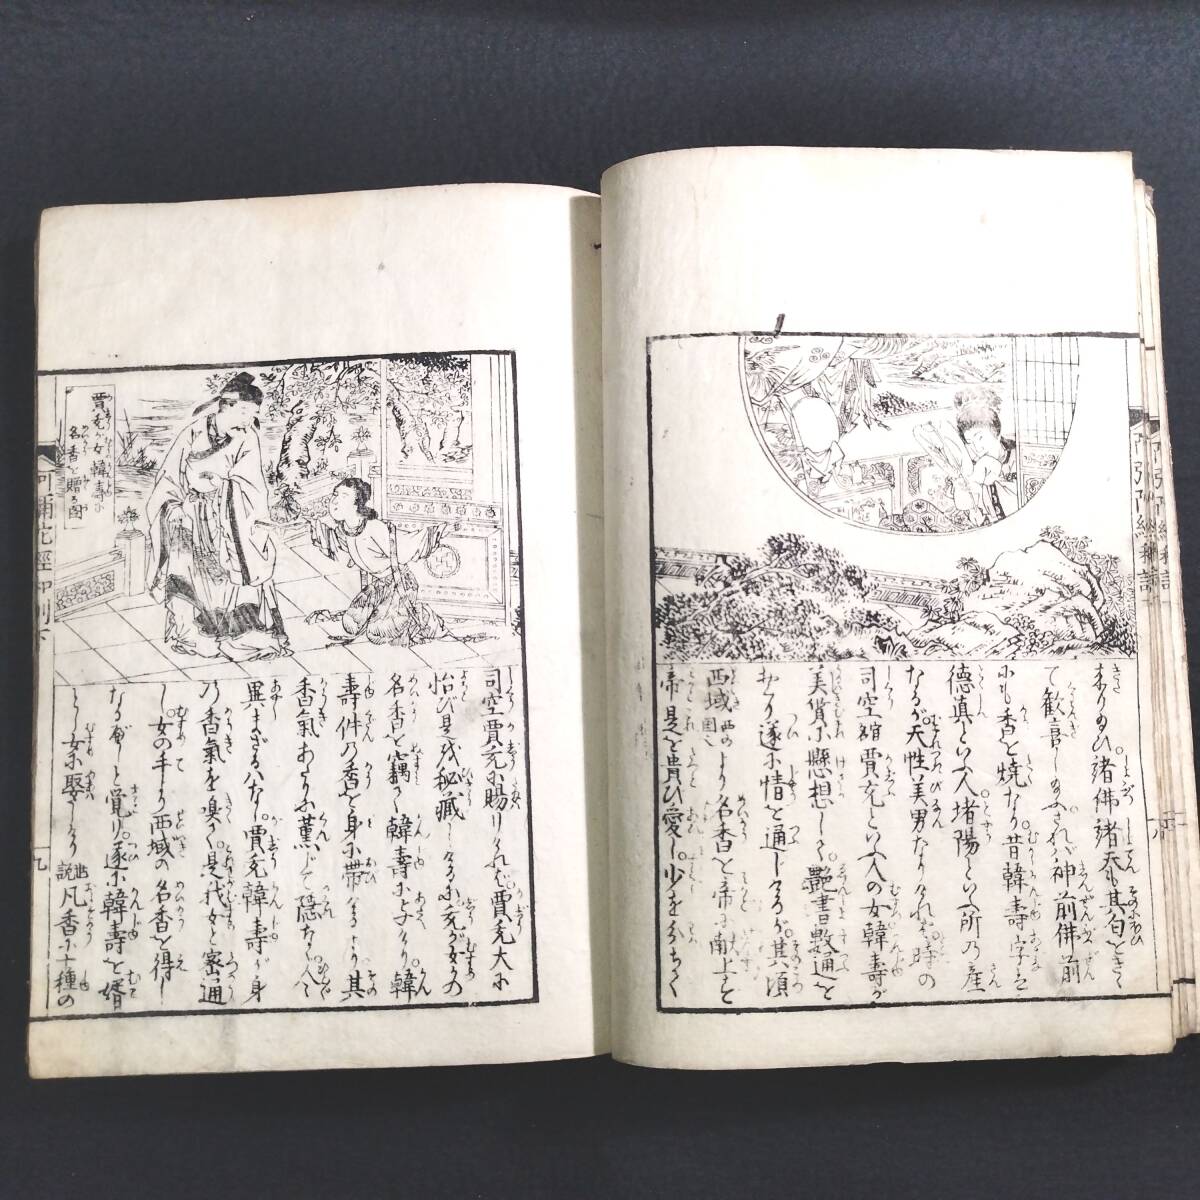 来り給ひ。諸佛諸天も其匂をきく
て歓喜し給ふされバ神前佛前
にも香を焼なり昔韓壽字は
徳真といふ人堵陽といふ所乃産
なるが天性美男なりければ時の
司空賈充といふ人の女韓壽が
美貨に懸想して艶書数通を
おくり遂に情を通しけるが其頃
西域西の国也より名香を帝に
帝是を貴び愛し少をわかちて
賈充が女韓壽に
名香を贈る図
司空賈充に賜りければ。賈充大に
怡び是を秘蔵しけるに充が女かの
名香を竊て韓壽に与へけり韓
壽件乃香を身に帯けるより其
香氣あたりに薫じて隠なく人々
異まざるハなし。賈充韓壽が身
乃香氣を臭て是我女と密通
し。女の手より西域の名香を得し
なるべしと覚り。遂に韓壽を婿
とし女に娶せけり世説凡香に十種の
阿彌陀經和訓下
九